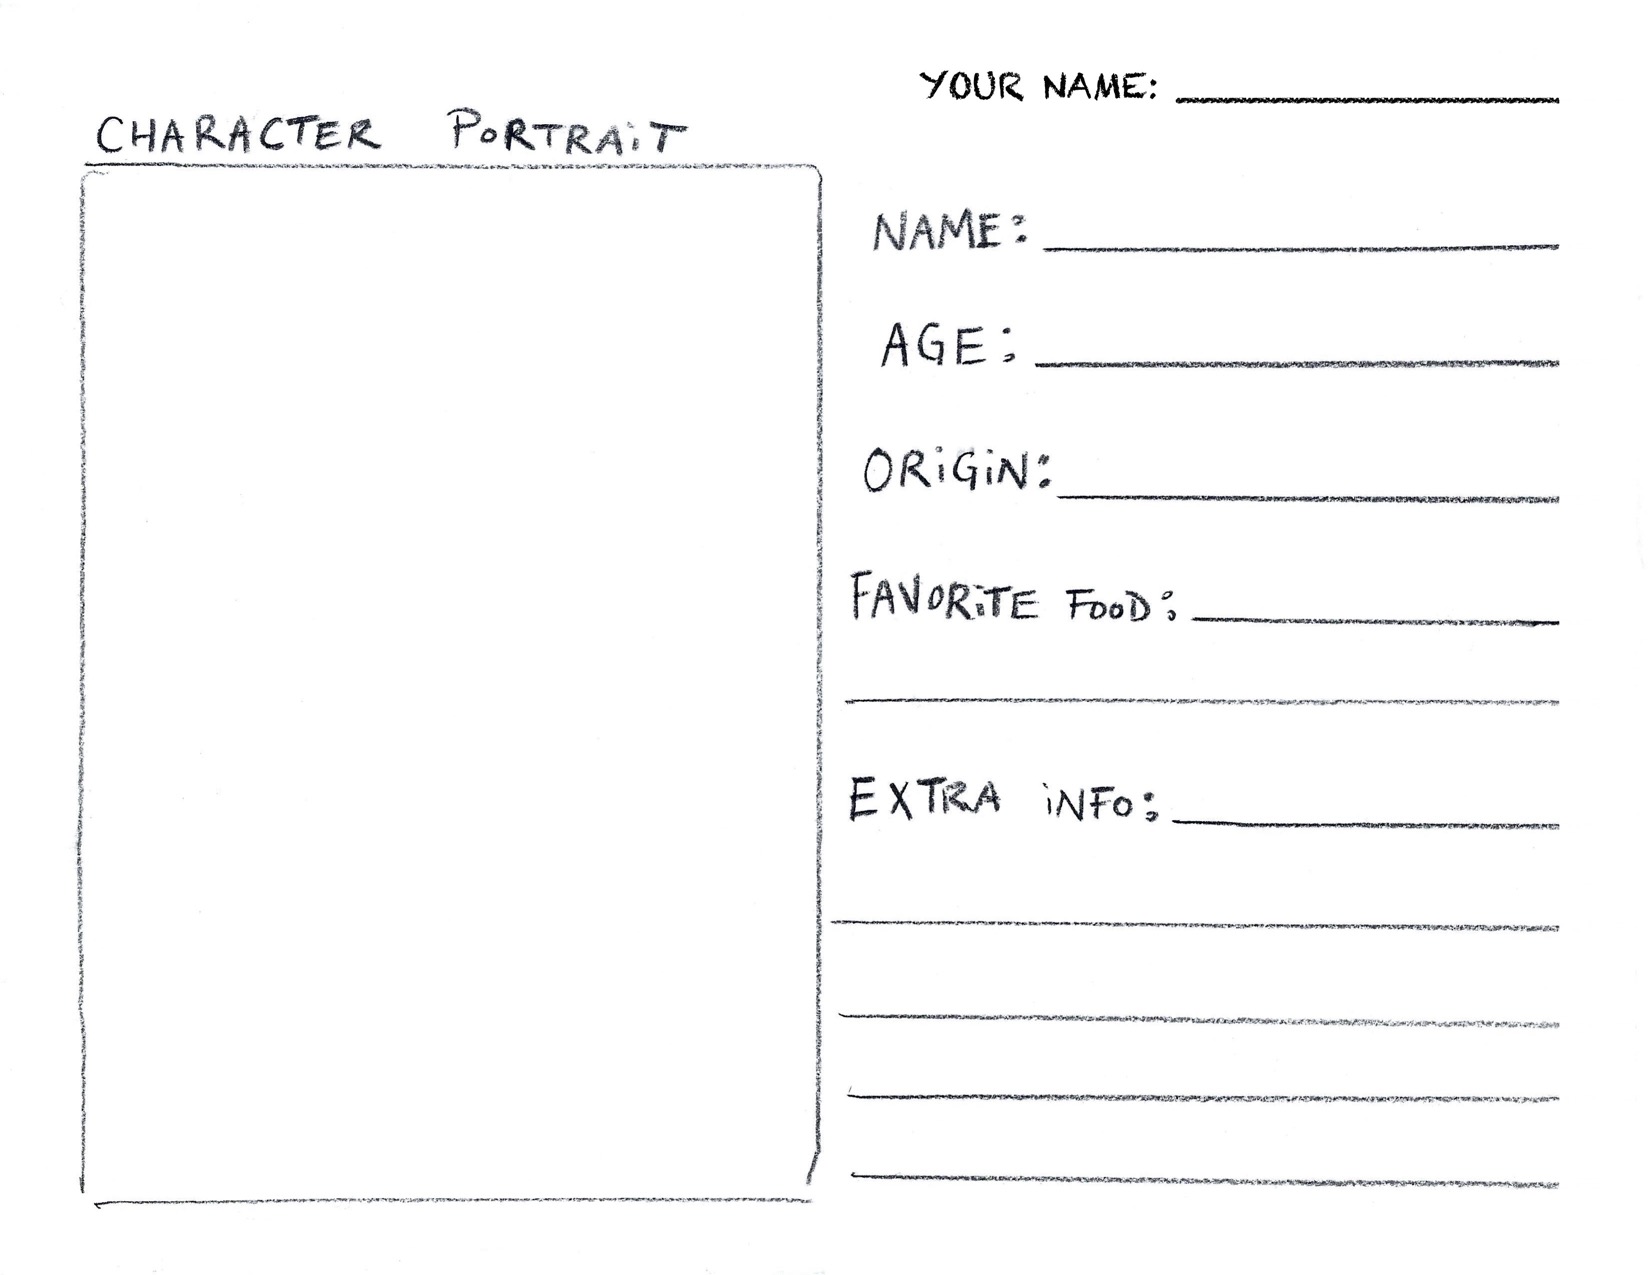 YOUR NAME:
CHARACTER PORTRAiT
NAME:
AGE:
ORiGiN:
FAVORiTE FOOD:
EXTRA iNFO: